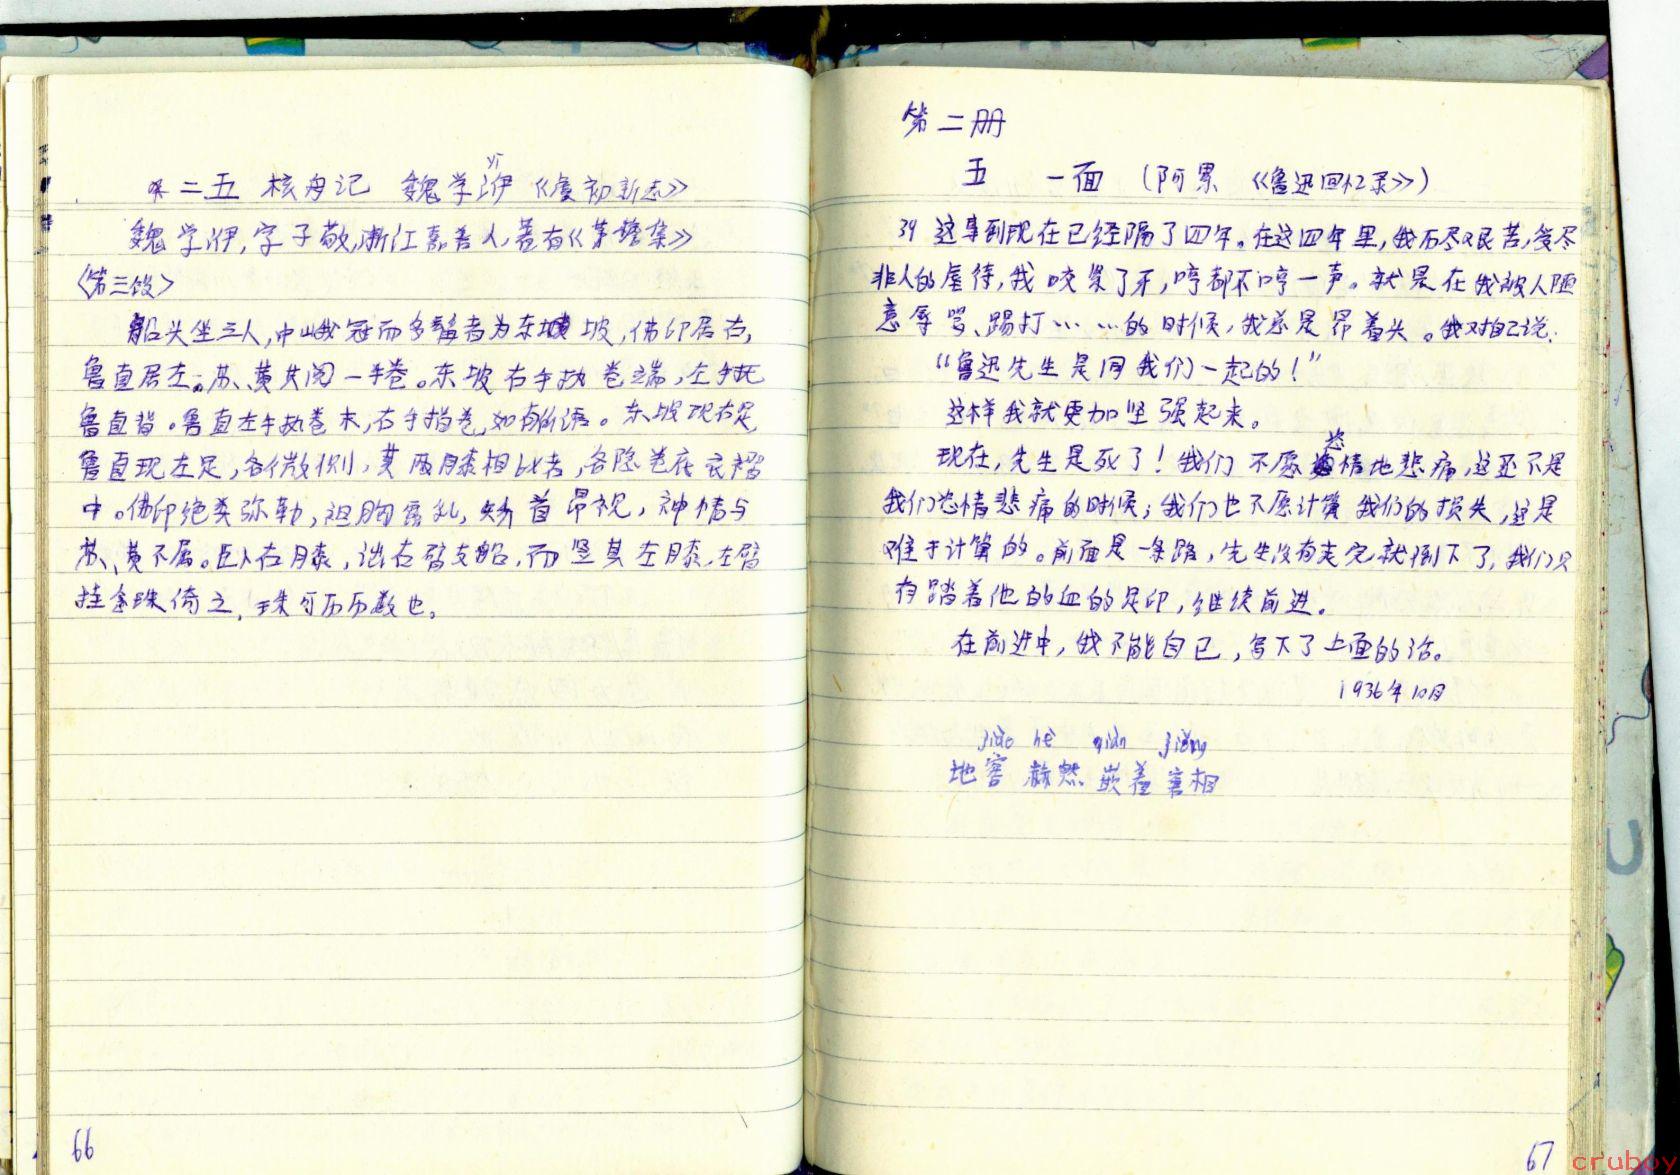 二五 核舟记 魏学洢 《虞初新志》
yī
魏学洢,字子敬,浙江嘉善人,著有《茅檐集》
〈第三段〉
船头坐三人,中峨冠而多髯者为东坡,佛印居右,
鲁直居左。苏、黄共阅一手卷。东坡右手执卷端,左手抚
鲁直背。鲁直左手执卷末,右手指卷,如有所语。东坡现右足,
鲁直现左足,各微侧,其两膝相比者,各隐卷底衣褶
中。佛印绝类弥勒,袒胸露乳,矫首昂视,神情与
苏、黄不属。卧右膝,诎右臂支船,而竖其左膝,左臂
挂念珠倚之,珠可历历数也。
66
第二册
五 一面 (阿累 《鲁迅回忆录》)
34 这事到现在已经隔了四年。在这四年里,我历尽艰苦,受尽
非人的虐待,我咬紧了牙,哼都不哼一声。就是在我被人随
意辱骂、踢打……的时候,我总是昂着头。我对自己说:
“鲁迅先生是同我们一起的!”
这样我就更加坚强起来。
现在,先生是死了!我们不愿恣情地悲痛,这还不是
我们恣情悲痛的时候;我们也不愿计算我们的损失,这是
难于计算的。前面是一条路,先生没有走完就倒下了,我们只
有踏着他的血的足印,继续前进。
在前进中,我不能自已,写下了上面的话。
1936年10月
jiào hè qiàn jiǎng
地窖 赫然 嵌着
67
cruboy